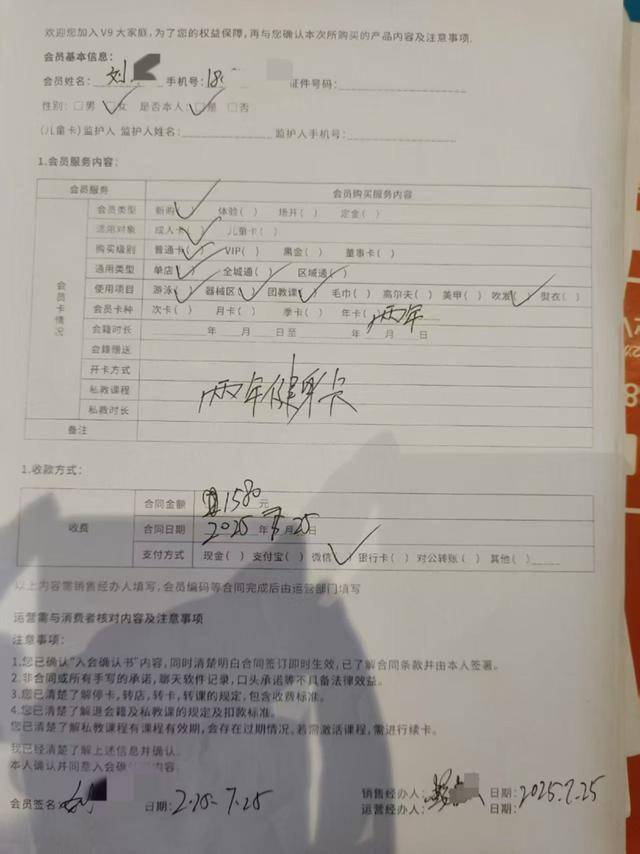 欢迎您加入V9大家庭,为了您的权益保障,再与您确认本次所购买的产品内容及注意事项.
会员基本信息:
会员姓名: 刘 手机号: 18 证件号码:
性别: □男 □女 是否本人: □是 □否
(儿童卡)监护人 监护人姓名: 监护人手机号:
1.会员服务内容:
会员服务 会员购买服务内容
会员卡情况
会员类型 新购( ) 体验( ) 场开( ) 定金( )
适用对象 成人卡( ) 儿童卡( )
购买级别 普通卡( ) VIP( ) 黑金( ) 董事卡( )
通用类型 单店( ) 全城通( ) 区域通( )
使用项目 游泳( ) 器械区( ) 团教课( ) 毛巾( ) 高尔夫( ) 美甲( ) 吹发( ) 熨衣( )
会员卡种 次卡( ) 月卡( ) 季卡( ) 年卡( 两年
会籍时长 年 月 日至 年 月 日
会籍赠送
开卡方式
私教课程 两年健身卡
私教时长
备注
1.收款方式:
收费
合同金额 1580元
合同日期 2025年7月25日
支付方式 现金( ) 支付宝( ) 微信( ) 银行卡( ) 对公转账( ) 其他( )
以上内容需销售经办人填写,会员编码等合同完成后由运营部门填写
运营需与消费者核对内容及注意事项
注意事项:
1.您已确认“入会确认书”内容,同时清楚明白合同签订即时生效,已了解合同条款并由本人签署。
2.非合同或所有手写的承诺,聊天软件记录,口头承诺等不具备法律效益。
3.您已清楚了解停卡,转店,转卡,转课的规定,包含收费标准。
4.您已清楚了解退会籍及私教课的规定及扣款标准。
您已清楚了解私教课程有课程有效期,会存在过期情况。若需激活课程,需进行续卡。
我已经清楚了解上述信息并确认。
本人确认并同意入会做 内容.
会员签名: 刘 日期: 2.25-7.25
销售经办人: 日期: 2025.7.25
运营经办人: 日期: